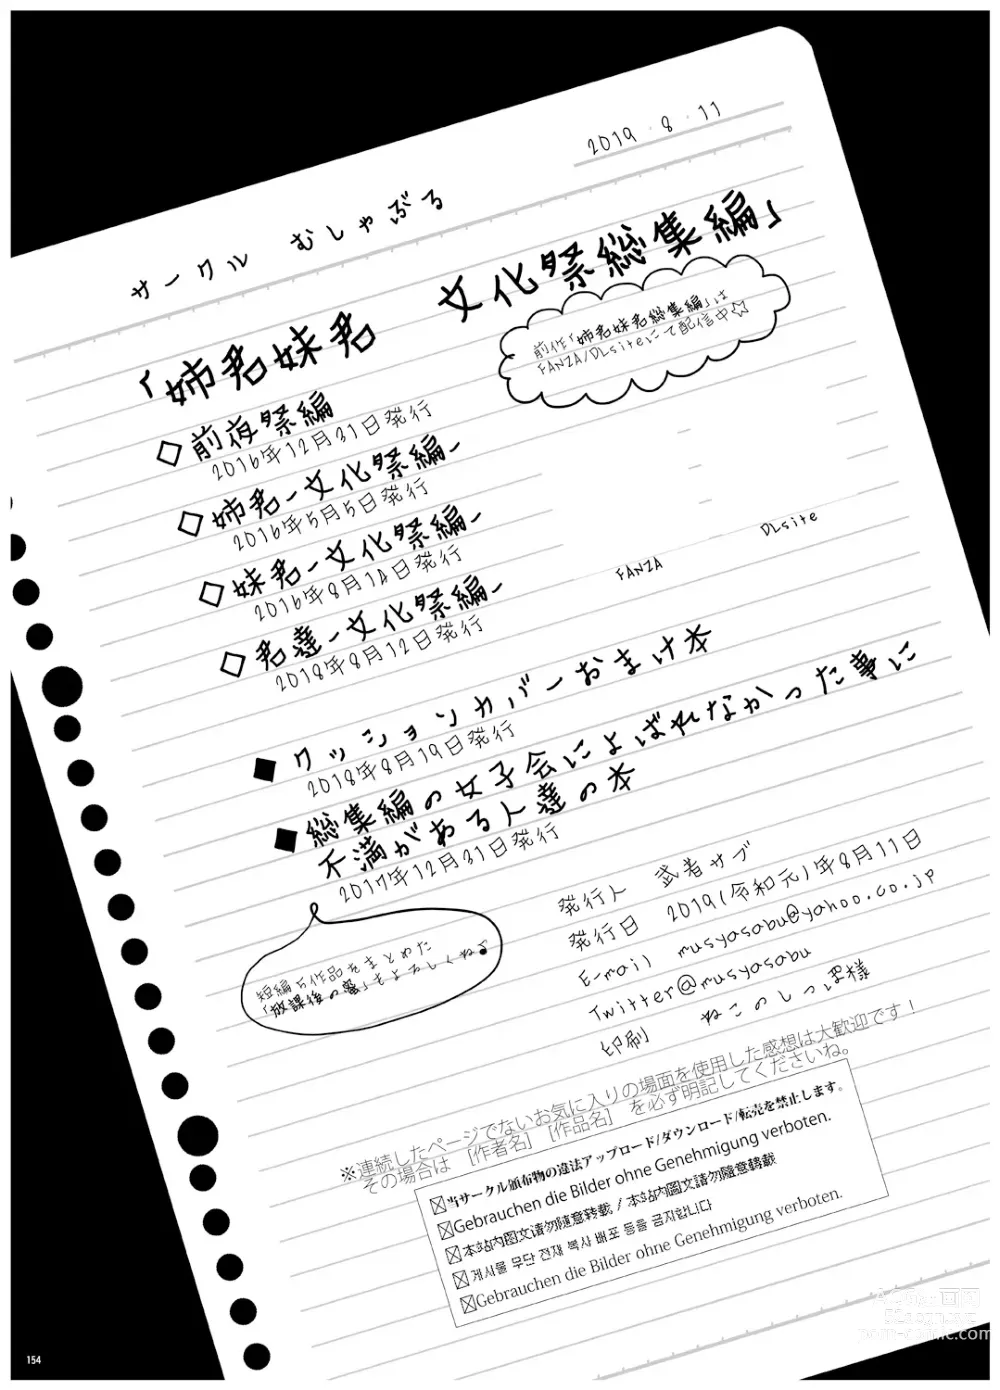 2019・8・11
サークル むしゃぶる
「姉君妹君 文化祭総集編」
前作「姉君妹君総集編」は
FANZA/DLsiteにて配信中☆
◇前夜祭編
2016年12月31日発行
◇姉君-文化祭編-
2016年5月5日発行
◇妹君-文化祭編-
2016年8月14日発行
◇君達-文化祭編-
2018年8月12日発行
FANZA
DLsite
◆クッションカバーおまけ本
2018年8月19日発行
◆総集編の女子会によばれなかった事に
不満がある人達の本
2017年12月31日発行
短編5作品をまとめた
「放課後の蜜」もよろしくね♪
発行人 武者サブ
発行日 2019(令和元)年8月11日
E-mail musyasabu@yahoo.co.jp
Twitter@musyasabu
印刷 ねこのしっぽ様
※連続したページでないお気に入りの場面を使用した感想は大歓迎です！
その場合は [作者名] [作品名] を必ず明記してくださいね。
当サークル頒布物の違法アップロード/ダウンロード/転売を禁止します。
Gebrauchen die Bilder ohne Genehmigung verboten.
本站内图文请勿随意转载 / 本站內圖文請勿隨意轉載
게시물 무단 전재 복사 배포 등을 금지합니다
Gebrauchen die Bilder ohne Genehmigung verboten.
154